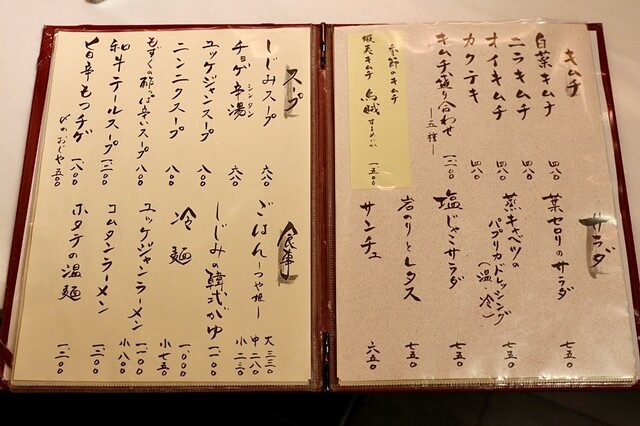 キムチ
白菜キムチ 四八〇
ニラキムチ 四八〇
オイキムチ 四八〇
カクテキ 四八〇
キムチ盛り合わせ ー五種ー 一二〇〇
季節のキムチ
烏賊 するめいか 一五〇〇
サラダ
葉セロリのサラダ 七五〇
蒸キャベツのパプリカドレッシング(温 冷) 七五〇
塩じゃこサラダ 七五〇
岩のりとレタス 七五〇
サンチュ 六五〇
スープ
しじみスープ 六八〇
チョゲ辛湯 シンタン 六八〇
ユッケジャンスープ 八〇〇
ニンニクスープ 八〇〇
もずくの酢っぱ辛いスープ 八〇〇
和牛テールスープ 一二〇〇
旨辛もつチゲ 一八〇〇
〆のおじや 五〇〇
食事
ごはん ーつや姫ー 大三三〇 中二八〇 小二三〇
しじみの韓式がゆ 一二〇〇
冷麺 一〇〇〇 小七五〇
ユッケジャンラーメン 一一〇〇 小八〇〇
コムタンラーメン 一二〇〇
ホタテの温麺 一二〇〇